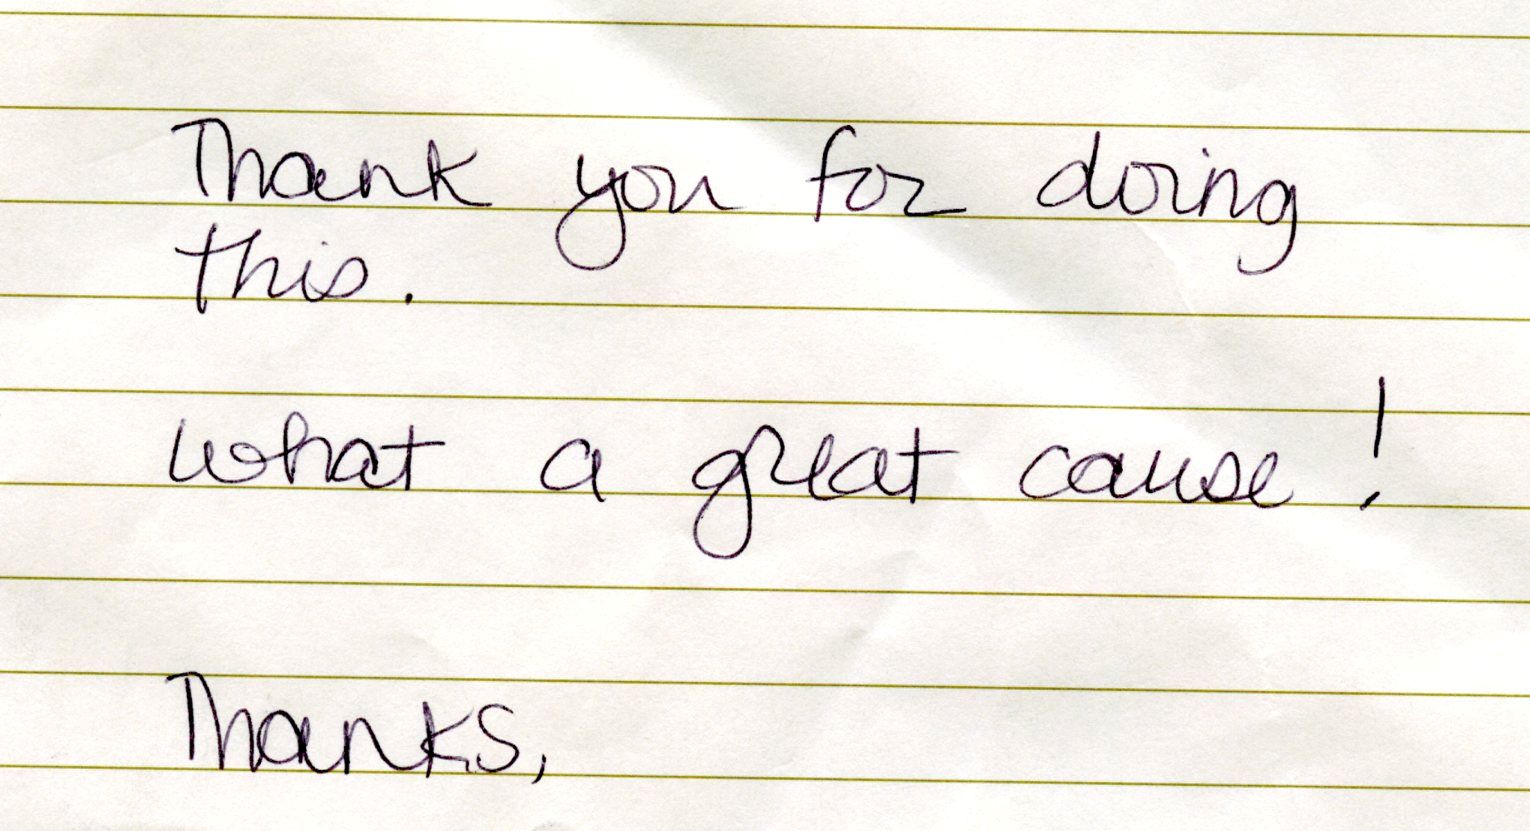 Thank you for doing
this.
What a great cause!
Thanks,